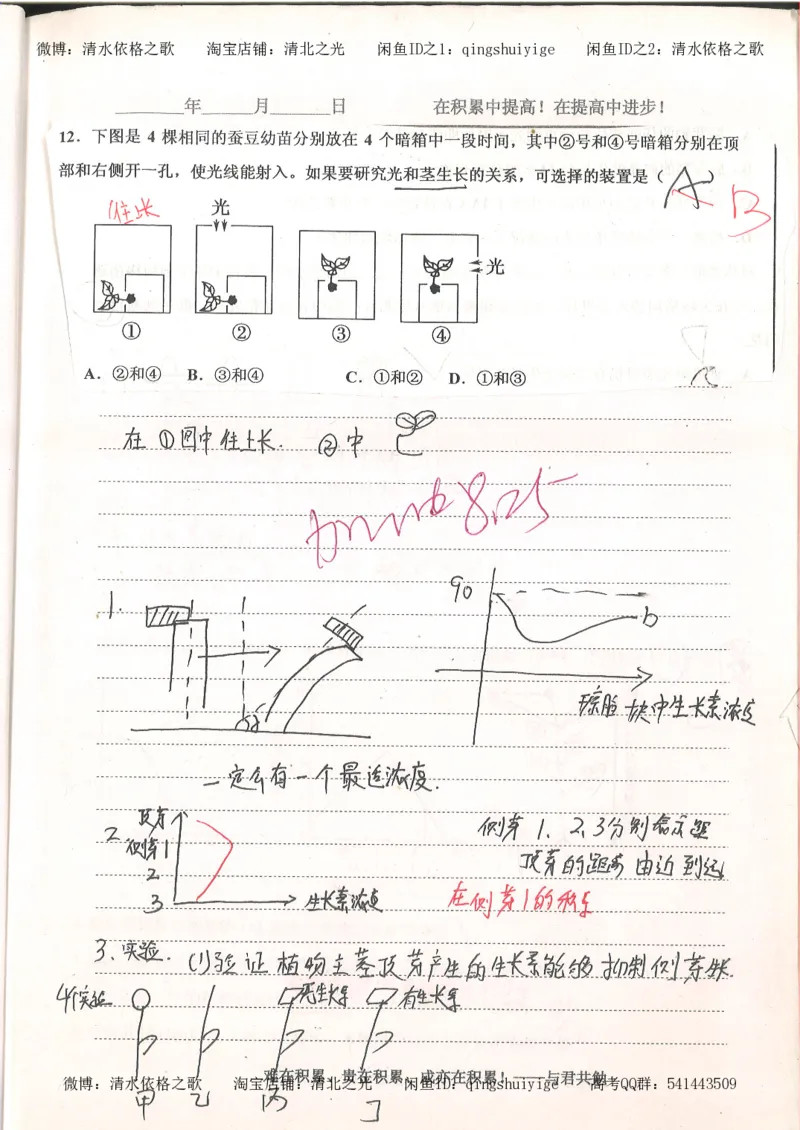 微博：清水依格之歌 淘宝店铺：清北之光 闲鱼ID之1：qingshuiyige 闲鱼ID之2：清水依格之歌
年 月 日 在积累中提高！在提高中进步！
12．下图是 4 棵相同的蚕豆幼苗分别放在 4 个暗箱中一段时间，其中②号和④号暗箱分别在顶
部和右侧开一孔，使光线能射入。如果要研究光和茎生长的关系，可选择的装置是（A）
B
往上长 光
光
① ② ③ ④
A．②和④ B．③和④ C．①和② D．①和③
在①图中往上长. ②中
8.25
1. 90 b
琼脂块中生长素浓度
一定会有一个最适浓度.
2. 顶芽
侧芽1
2
3 生长素浓度
侧芽 1、2、3分别表示距
顶芽的距离由近到远
在侧芽1的
3、实验. (1)验证植物主茎顶芽产生的生长素能够抑制侧芽生长.
4个实验 无生长素 有生长素
甲 乙 丙 丁
难在积累，贵在积累，成亦在积累！——与君共勉
微博：清水依格之歌 淘宝店铺：清北之光 闲鱼ID：qingshuiyige 高考QQ群：541443509